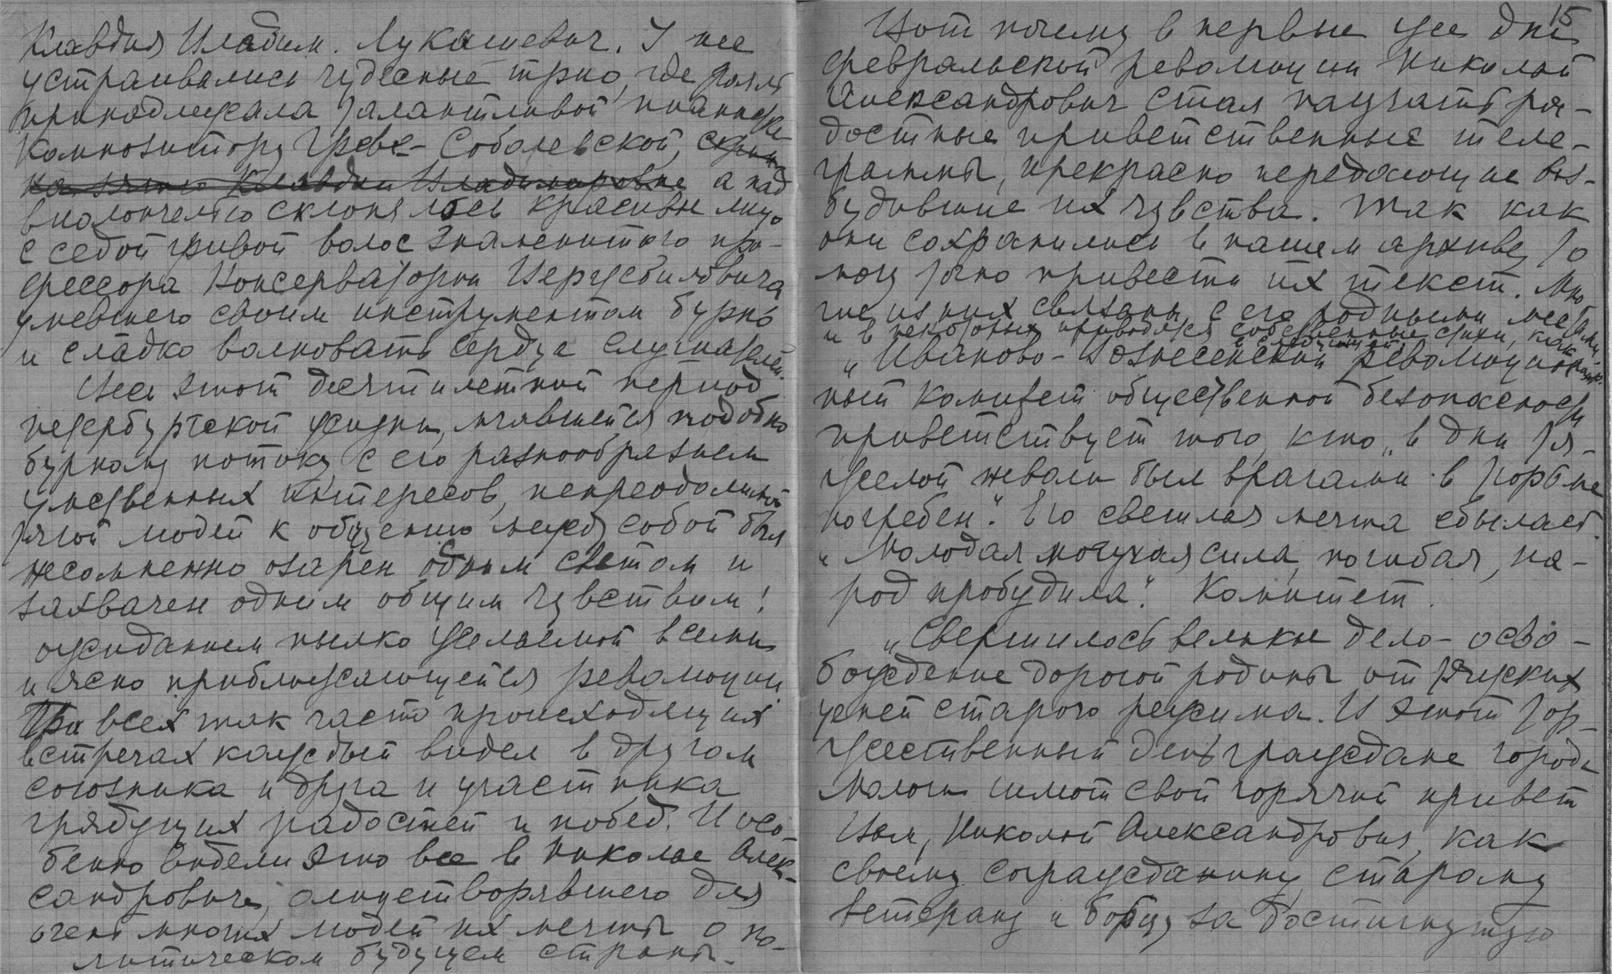 Клавдия Владим. Лукашевич. У нее
устраивались чудесные трио, где рояль
принадлежала талантливой пианистке
композитору Греве-Соболевской,
а над
виолончелью склонялось красивое лицо
с седой гривой волос знаменитого про-
фессора Консерватории Вержбиловича
умевшего своим инструментом бурно
и сладко волновать сердца слушателей.
Весь этот десятилетний период
петербургской жизни, мчавшейся подобно
бурному потоку с его разнообразием
умственных интересов, непреодолимой
тягой людей к общению между собой был
несомненно озарен одним светом и
захвачен одним общим чувством:
ожиданием пылко желаемой всеми
и ясно приближающейся революции.
При всех так часто происходящих
встречах каждый видел в другом
союзника и друга и участника
грядущих радостей и побед. И осо-
бенно видели это все в Николае Алек-
сандровиче, олицетворявшего для
очень многих людей их мечты о по-
литическом будущем страны.
15
Вот почему в первые же дни
февральской революции Николай
Александрович стал получать ра-
достные приветственные теле-
граммы, прекрасно передающие воз-
будившие их чувства. Так как
они сохранились в нашем архиве, то
могу точно привести их текст. Мно
гие из них связаны с его родными местами
и в некоторых приводятся собственные стихи, как
в следующей
"Иваново-Вознесенский революцион
ный Комитет общественной безопасности
приветствует того, кто "в дни тя-
желой неволи был врагами в гробы
погребен". Его светлая мечта сбылась.
"Молодая могучая сила, погибая, на-
род пробудила". Комитет.
"Свершилось великое дело - осво-
бождение дорогой родины от тяжких
цепей старого режима. И в этот тор-
жественный день граждане города
Мологи шлют свой горячий привет
Вам, Николай Александрович, как
своему согражданину, старому
ветерану и борцу за достигнутую